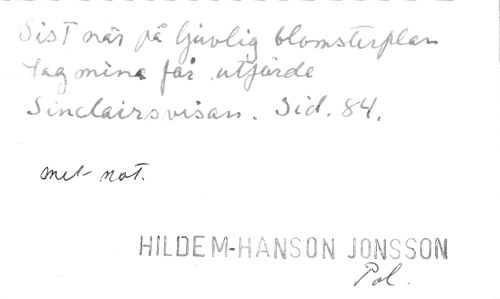 Sist när på ljuvlig blomsterplan
Jag mina får utförde
Sinclairsvisan. Sid. 84.
met not.
HILDEM-HANSON JONSSON
Pol.